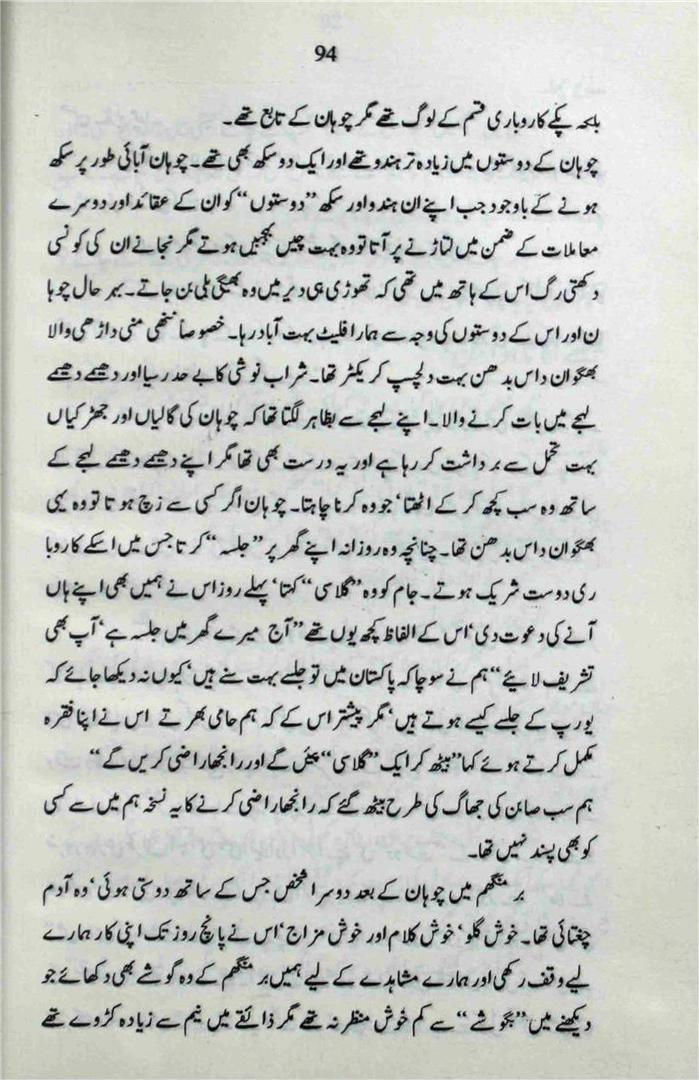 94
بلکہ پکے کاروباری قسم کے لوگ تھے مگر چوہان کے تابع تھے۔
چوہان کے دوستوں میں زیادہ تر ہندو تھے اور ایک دو سکھ بھی تھے۔ چوہان آبائی طور پر سکھ
ہونے کے باوجود جب اپنے ان ہندو اور سکھ ”دوستوں“ کو ان کے عقائد اور دوسرے
معاملات کے ضمن میں لتاڑنے پر آتا تو وہ بہت چیں بجبیں ہوتے مگر نجانے ان کی کونسی
دکھتی رگ اس کے ہاتھ میں تھی کہ تھوڑی ہی دیر میں وہ بھیگی بلی بن جاتے۔ بہر حال چوہا
ن اور اس کے دوستوں کی وجہ سے ہمارا فلیٹ بہت آباد رہا۔ خصوصاً ننھی منی داڑھی والا
بھگوان داس بدھن بہت دلچسپ کریکٹر تھا۔ شراب نوشی کا بے حد رسیا اور دھیمے دھیمے
لہجے میں بات کرنے والا۔ اپنے لہجے سے بظاہر لگتا تھا کہ چوہان کی گالیاں اور جھڑکیاں
بہت تحمل سے برداشت کر رہا ہے اور یہ درست بھی تھا مگر اپنے دھیمے دھیمے لہجے کے
ساتھ وہ سب کچھ کر کے اٹھتا‘ جو وہ کرنا چاہتا۔ چوہان اگر کسی سے زچ ہوتا تو وہ یہی
بھگوان داس بدھن تھا۔ چنانچہ وہ روزانہ اپنے گھر پر ”جلسہ“ کرتا جس میں اسکے کاروبا
ری دوست شریک ہوتے۔ جام کو وہ ”گلاسی“ کہتا‘ پہلے روز اس نے ہمیں بھی اپنے ہاں
آنے کی دعوت دی‘ اس کے الفاظ کچھ یوں تھے ”آج میرے گھر میں جلسہ ہے‘ آپ بھی
تشریف لایئے“ ہم نے سوچا کہ پاکستان میں تو جلسے بہت سنے ہیں‘ کیوں نہ دیکھا جائے کہ
یورپ کے جلسے کیسے ہوتے ہیں‘ مگر پیشتر اس کے کہ ہم حامی بھرتے اس نے اپنا فقرہ
مکمل کرتے ہوئے کہا ”بیٹھ کر ایک ”گلاسی“ پیئں گے اور رانجھا راضی کریں گے“
ہم سب صابن کی جھاگ کی طرح بیٹھ گئے کہ رانجھا راضی کرنے کا یہ نسخہ ہم میں سے کسی
کو بھی پسند نہیں تھا۔
برمنگھم میں چوہان کے بعد دوسرا شخص جس کے ساتھ دوستی ہوئی‘ وہ آدم
چغتائی تھا۔ خوش گلو‘ خوش کلام اور خوش مزاج‘ اس نے پانچ روز تک اپنی کار ہمارے
لیے وقف رکھی اور ہمارے مشاہدے کے لیے ہمیں برمنگھم کے وہ گوشے بھی دکھائے جو
دیکھنے میں ”بگوشے“ سے کم خوش منظر نہ تھے مگر ذائقے میں نیم سے زیادہ کڑوے تھے